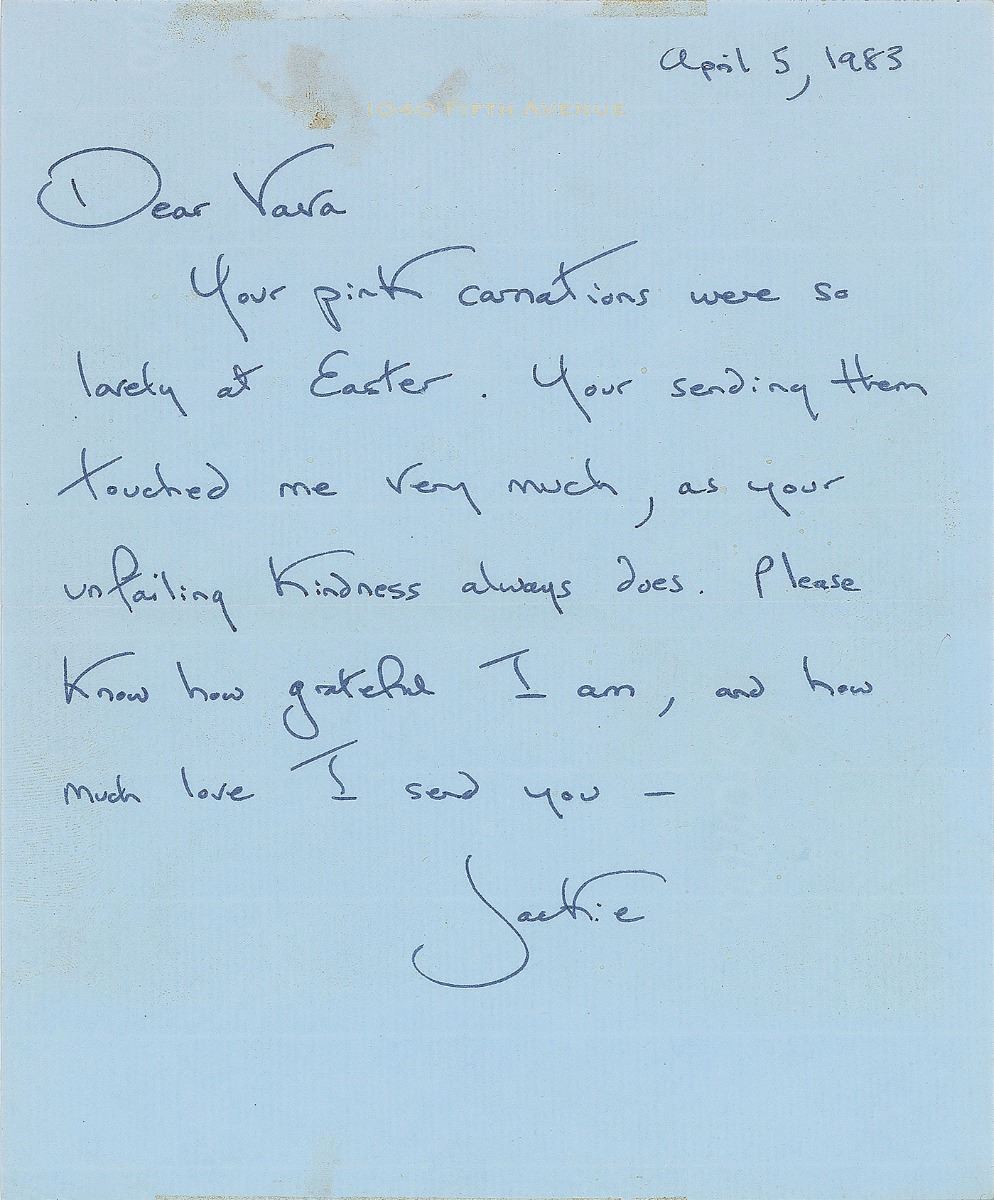 April 5, 1983
1040 FIFTH AVENUE
Dear Vava
Your pink carnations were so
lovely at Easter. Your sending them
touched me very much, as your
unfailing kindness always does. Please
know how grateful I am, and how
much love I send you –
Jackie